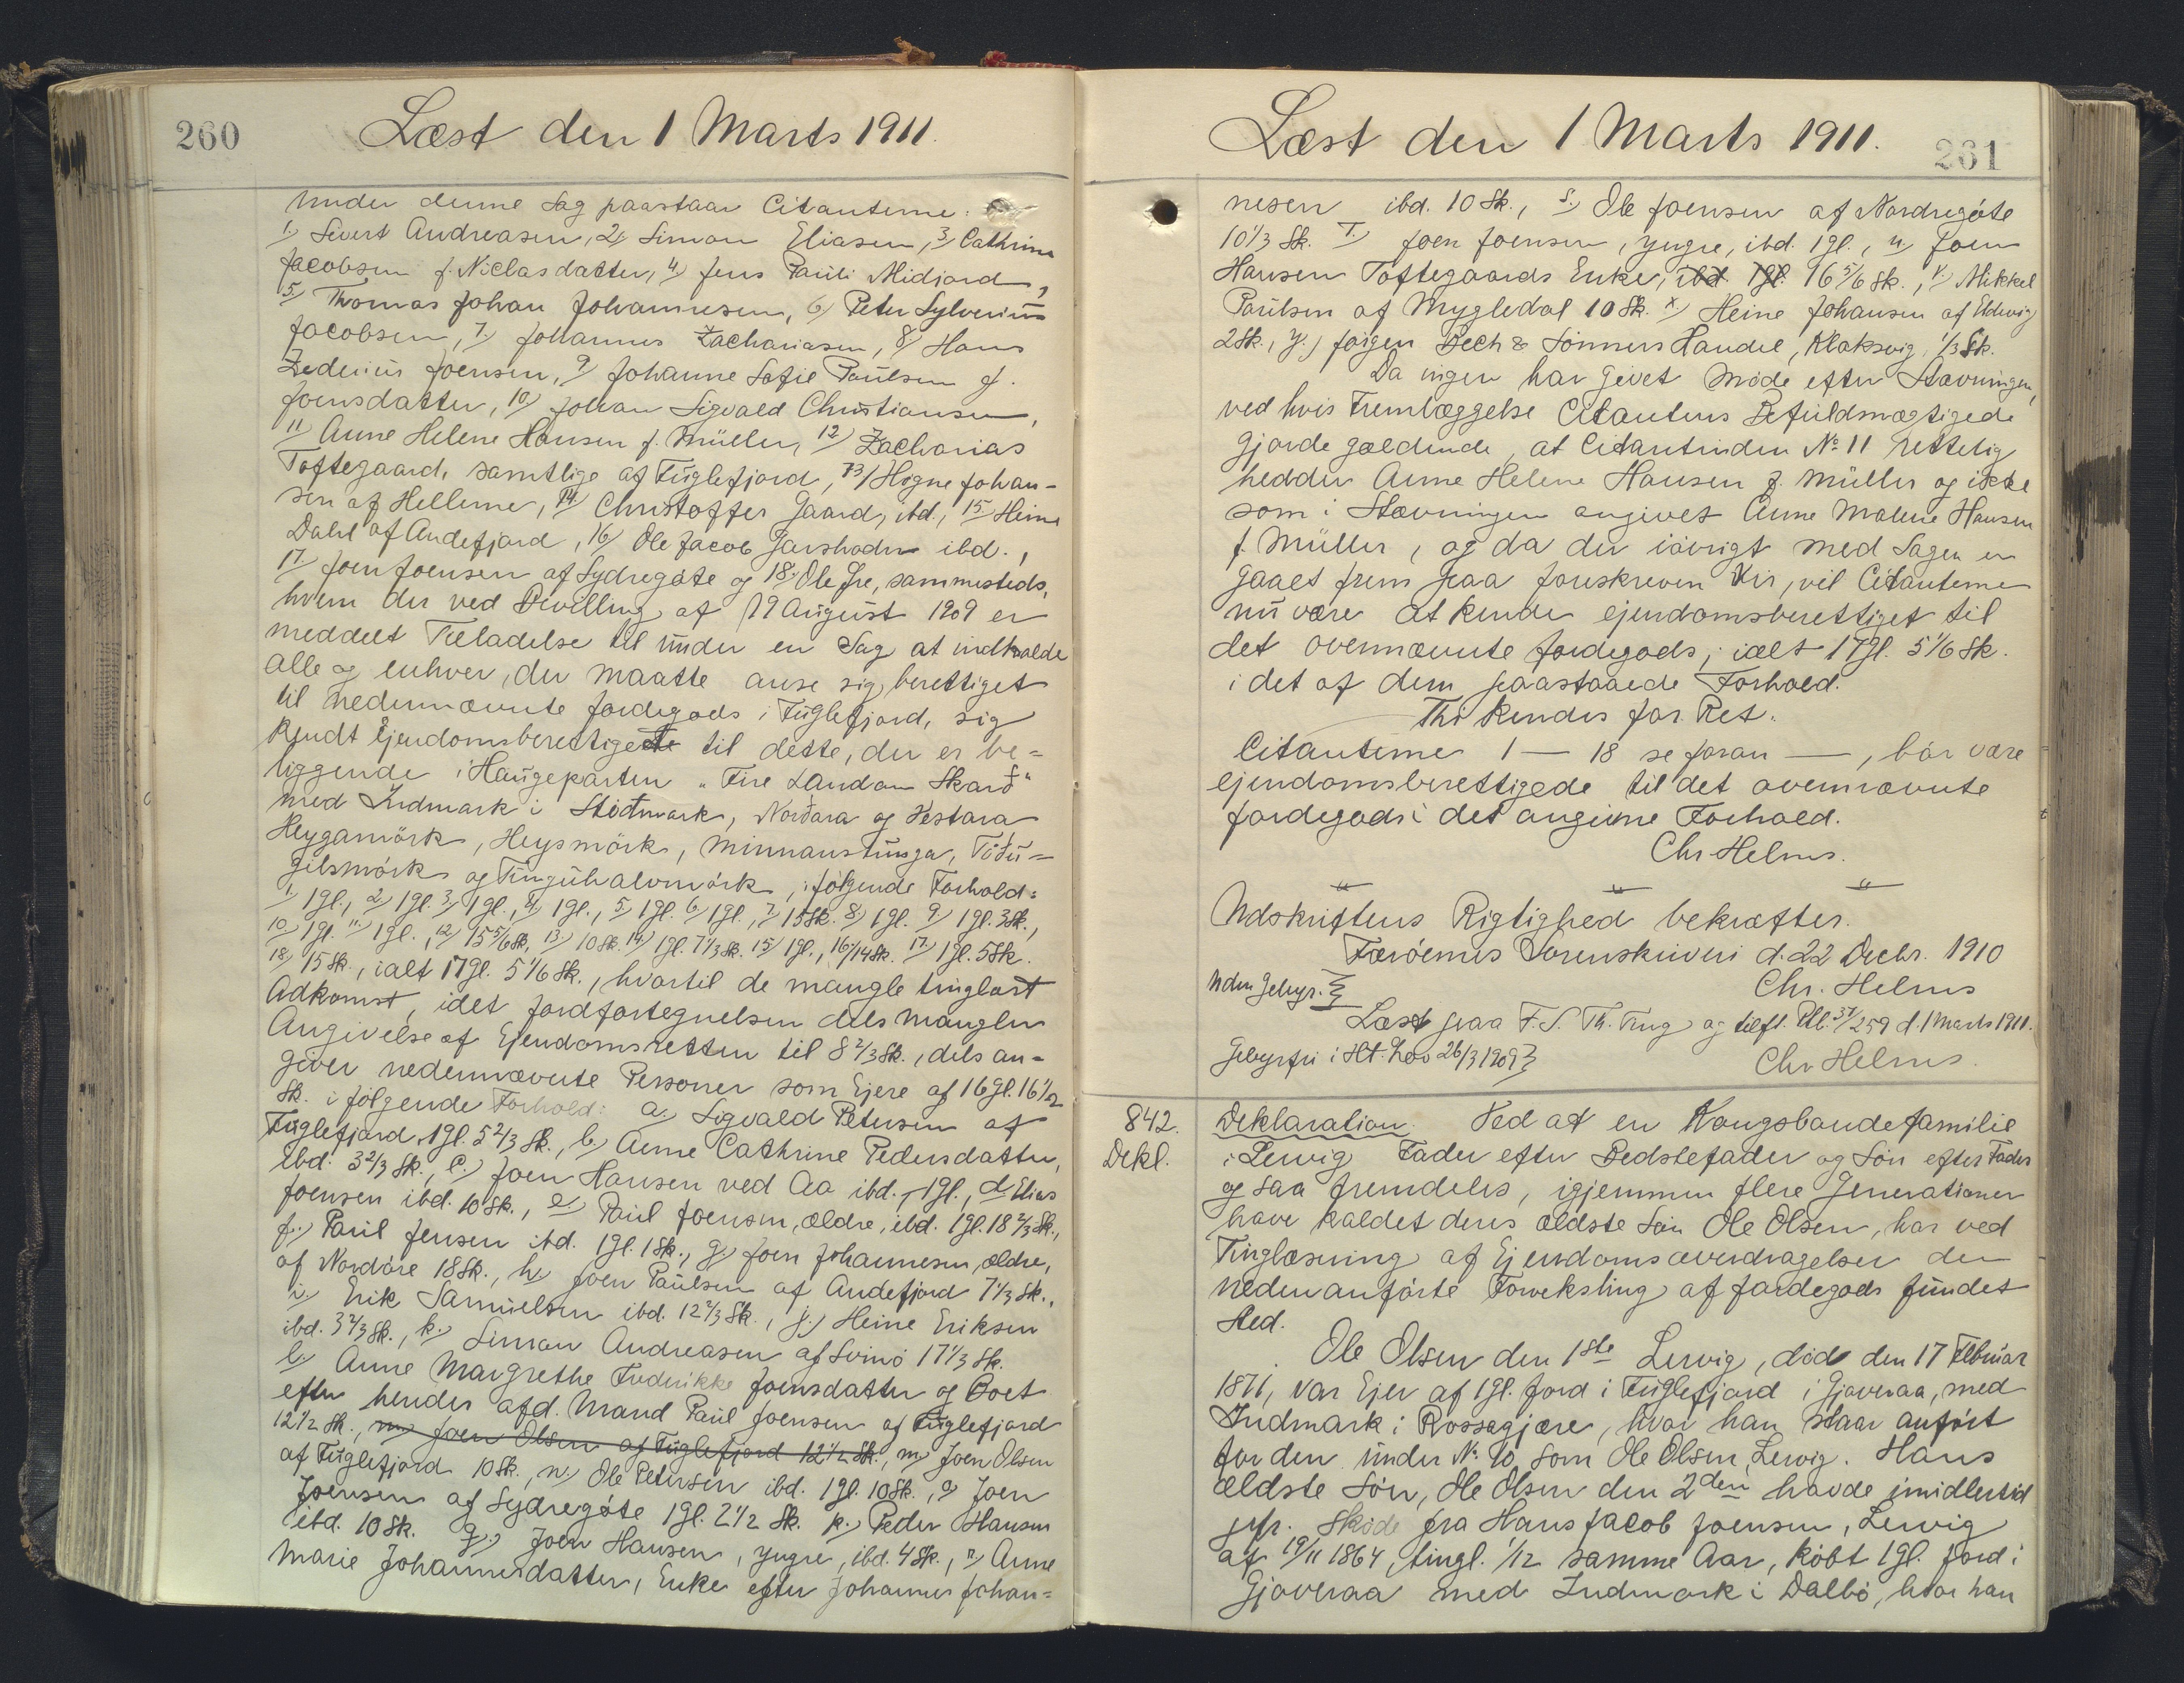 260
Læst den 1 Marts 1911.
Under denne Sag paastaar Citanterne:
1) Sivert Andreasen, 2) Simon Eliasen, 3) Cathrine
Jacobsen f. Niclasdatter, 4) Jens Pauli Midjord,
5) Thomas Johan Johannesen, 6) Peter Sylverius
Jacobsen, 7) Johannes Zachariasen, 8) Hans
Zederius Joensen, 9) Johanne Sofie Paulsen f.
Joensdatter, 10) Johan Sigvald Christiansen,
11) Anne Helene Hansen f. Müller, 12) Zacharias
Toftegaard, samtlige af Fuglefjord, 13) Høgne Johan-
sen af Hellerne, 14) Christoffer Gaard, ibd., 15) Heine
Dahl af Andefjord, 16) Ole Jacob Garshodn ibd.,
17) Joen Joensen af Sydregøte og 18) Ole Gre, sammesteds,
hvem der ved Bevilling af 19 August 1909 er
meddelt Tilladelse til under en Sag at indkalde
alle og enhver, der maatte anse sig berettiget
til nedennævnte Jordegods i Fuglefjord, sig
kjendt Ejendomsberettigede til dette, der er be-
liggende i Haugeparten "Fire Landom Skarð"
med Indmark i Støðmark, Norðara og Vestara
Heygamörk, Heysmörk, Minnanstunga, Töðu-
gilsmörk og Tunguhalvmörk, i følgende Forhold:
1) 1 Gl., 2) 1 Gl. 3) 1 Gl., 4) 1 Gl., 5) 1 Gl. 6) 1 Gl., 7) 15 Sk. 8) 1 Gl. 9) 1 Gl. 3 Sk.,
10) 1 Gl. 11) 1 Gl., 12) 15 5/6 Sk, 13) 10 Sk. 14) 1 Gl. 7 1/3 Sk. 15) 1 Gl., 16) 14 Sk. 17) 1 Gl. 5 Sk.
18) 15 Sk., ialt 17 Gl. 5 1/6 Sk., hvortil de mangle tinglæst
Adkomst, idet Jordfortegnelsen dels mangler
Angivelse af Ejendomsretten til 8 2/3 Sk., dels an-
giver nedennævnte Personer som Ejere af 16 Gl. 16 1/2
Sk. i følgende Forhold: a.) Sigvald Petersen af
Fuglefjord, 1 Gl. 5 2/3 Sk., b.) Anne Cathrine Pedersdatter,
ibd. 3 2/3 Sk., c.) Joen Hansen ved Aa ibd., 1 Gl., d. Elias
Joensen ibd. 10 Sk., e.) Paul Joensen, ældre, ibd. 1 Gl. 18 2/3 Sk.,
f.) Paul Jensen ibd. 1 Gl. 1 Sk., g.) Joen Johannesen, ældre,
af Nordøre 18 Sk., h.) Joen Paulsen af Andefjord 7 1/3 Sk.,
i.) Erik Samuelsen ibd. 12 2/3 Sk., j.) Heine Eriksen
ibd. 3 2/3 Sk., k.) Simon Andreasen af Svinø 17 1/3 Sk.
l.) Anne Margrethe Frederikke Joensdatter og Boet
efter hendes afd. Mand Paul Joensen af Fuglefjord
12 1/2 Sk., m) Joen Olsen af Fuglefjord 12 1/2 Sk., m) Joen Olsen
af Fuglefjord 10 Sk., n.) Ole Petersen ibd. 1 Gl. 10 Sk., o) Joen
Joensen af Sydregøte 1 Gl. 2 1/2 Sk. p.) Peder Hansen
ibd. 10 Sk. q.) Joen Hansen, yngre, ibd. 4 Sk., r) Anne
Marie Johannesdatter, Enke efter Johannes Johan-
Læst den 1 Marts 1911.
261
nesen ibd. 10 Sk., s.) Ole Joensen af Nordregøte
10 1/3 Sk. T.) Joen Joensen, yngre, ibd. 1 Gl., u.) Joen
Hansen Toftegaards Enke, ibd. 1 Gl. 16 5/6 Sk., v.) Mikkel
Paulsen af Mygledal 10 Sk. x) Heine Johansen af Eldevig
2 Sk., y.) Jørgen Bech & Sønners Handel, Klaksvig, 1/3 Sk.
Da ingen har givet Møde efter Stævningen,
ved hvis Fremlæggelse Citantens Befuldmægtigede
gjorde gældende, at Citantinden No 11 rettelig
hedder Anne Helene Hansen f. Müller og ikke
som i Stævningen angivet Anne Malene Hansen
f. Müller, og da der iøvrigt med Sagen er
gaaet frem paa foreskreven Vis, vil Citanterne
nu være at kende ejendomsberettiget til
det ovennævnte Jordegods, ialt 17 Gl. 5 1/6 Sk.
i det af dem paastaaede Forhold.
Thi kendes for Ret:
Citanterne 1 — 18 se foran —, bør være
ejendomsberettigede til det ovennævnte
Jordegods i det angivne Forhold.
Chr. Helms.
" " "
Udskriftens Rigtighed bekræfter.
Færøernes Sorenskriveri d. 22 Decbr. 1910
Uden Gebyr. Chr. Helms
Læst paa F. S. Th. Ting og tilfl. Pbl. 37/259 d. 1 Marts 1911.
Gebyrfri i Ht. Lov 26/3 1909 Chr Helms.
842.
Dekl.
Deklaration. Ved at en Kongsbondefamilie
i Lervig Fader efter Bedstefader og Søn efter Fader
og saa fremdeles, igjennem flere Generationer
have kaldet deres ældste Søn Ole Olsen, har ved
Tinglæsning af Ejendomsoverdragelser den
nedenanførte Forveksling af Jordegods fundet
Sted.
Ole Olsen den 1ste Lervig, død den 17 Februar
1871, var Ejer af 1 Gl. Jord i Fuglefjord i Gjoveraa, med
Indmark i Rossagjære, hvor han staar anført
for den under No 10 som Ole Olsen, Lervig. Hans
ældste Søn, Ole Olsen den 2den havde imidlertid
jvfr. Skøde fra Hans Jacob Joensen, Lervig
af 19/11 1864, tingl. 1/12 samme Aar, købt 1 Gl. Jord i
Gjoveraa med Indmark i Dalbø, hvor han